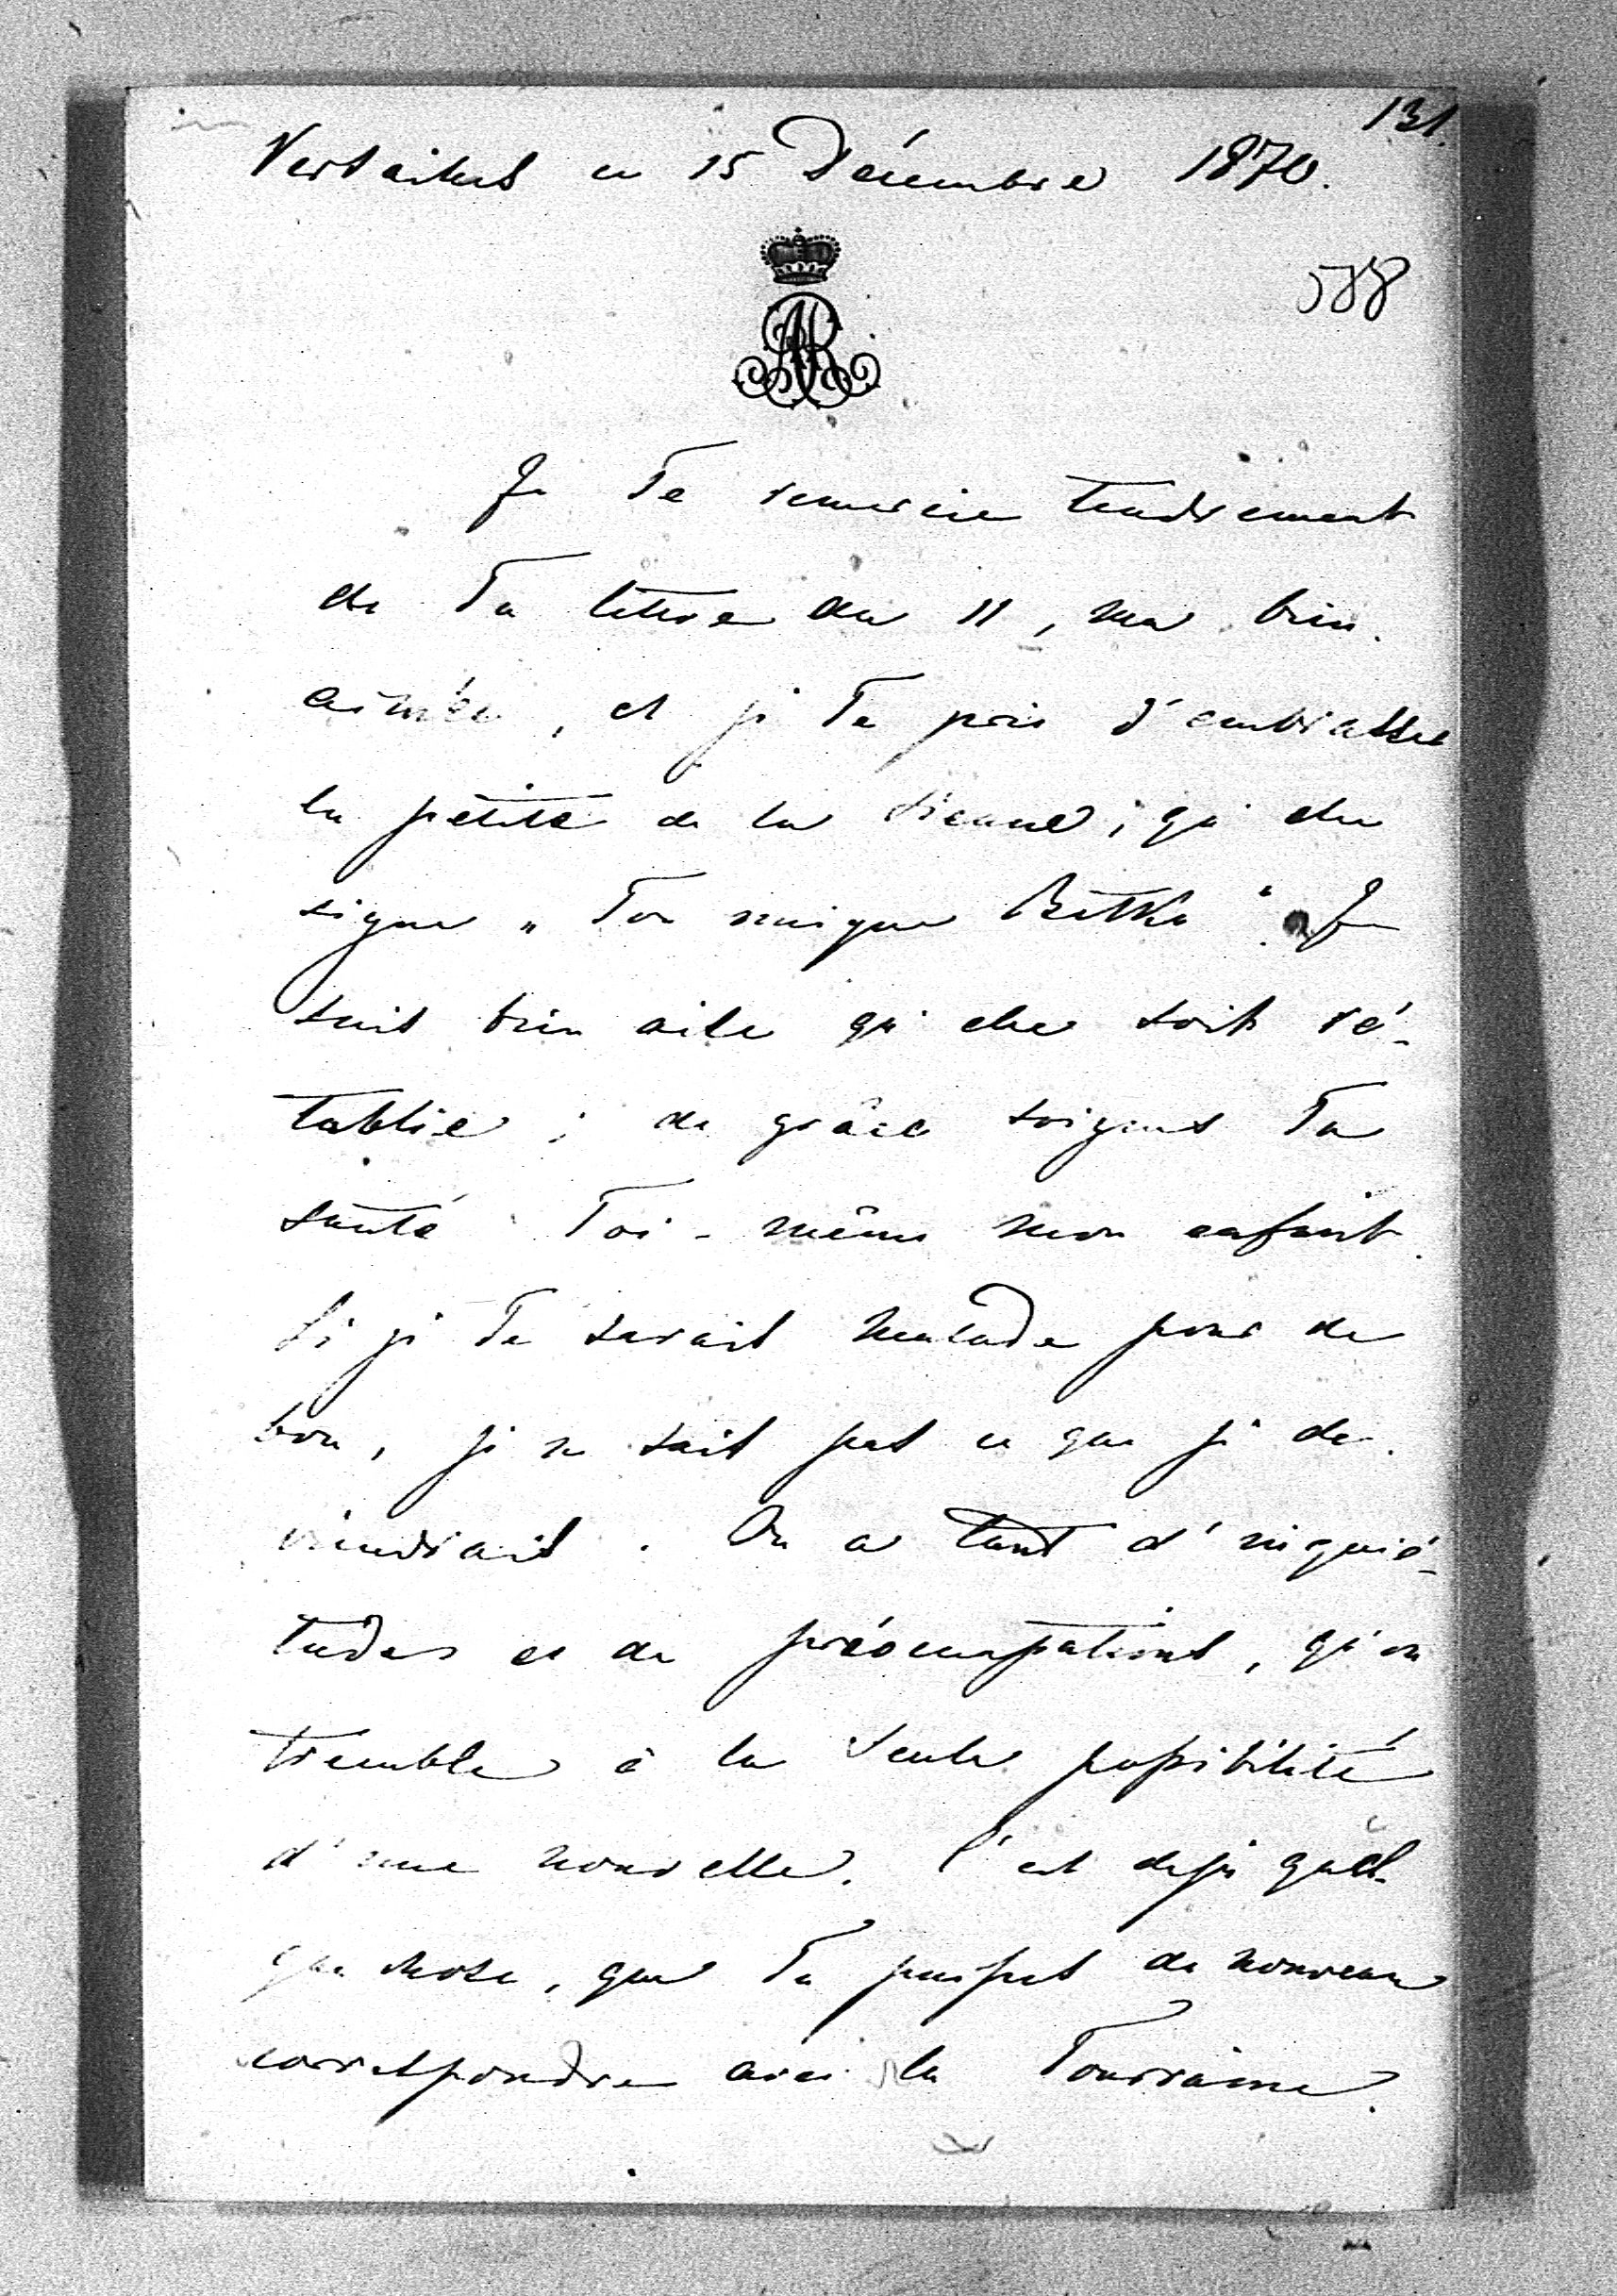 131.
Versailles ce 15 Décembre 1870.
588
AR
Je Te remercie tendrement
de Ta lettre du 11, ma bien-
aimée, et je Te prie d'embrasser
la petite de la sienne; qu'elle
signe „Ton unique Betka“. Je
suis bien aise qu'elle soit ré-
tablie; de grâce soignes Ta
santé Toi-même mon enfant.
Si je Te savais malade pour de
bon, je ne sais pas ce que je de-
viendrais. On a tant d'inquié-
tudes et de préoccupations, qu'on
tremble à la seule possibilité
d'une nouvelle. C'est déjà quel-
que chose, que Tu puisses de nouveau
correspondre avec la Tourraine.